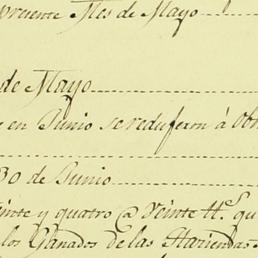 presente Mes de Mayo
de Mayo
e en Junio se reduferon á Obr
30 de Junio
inte y quatro @ Veinte tt.s qu
los Ganados de las Haciendas